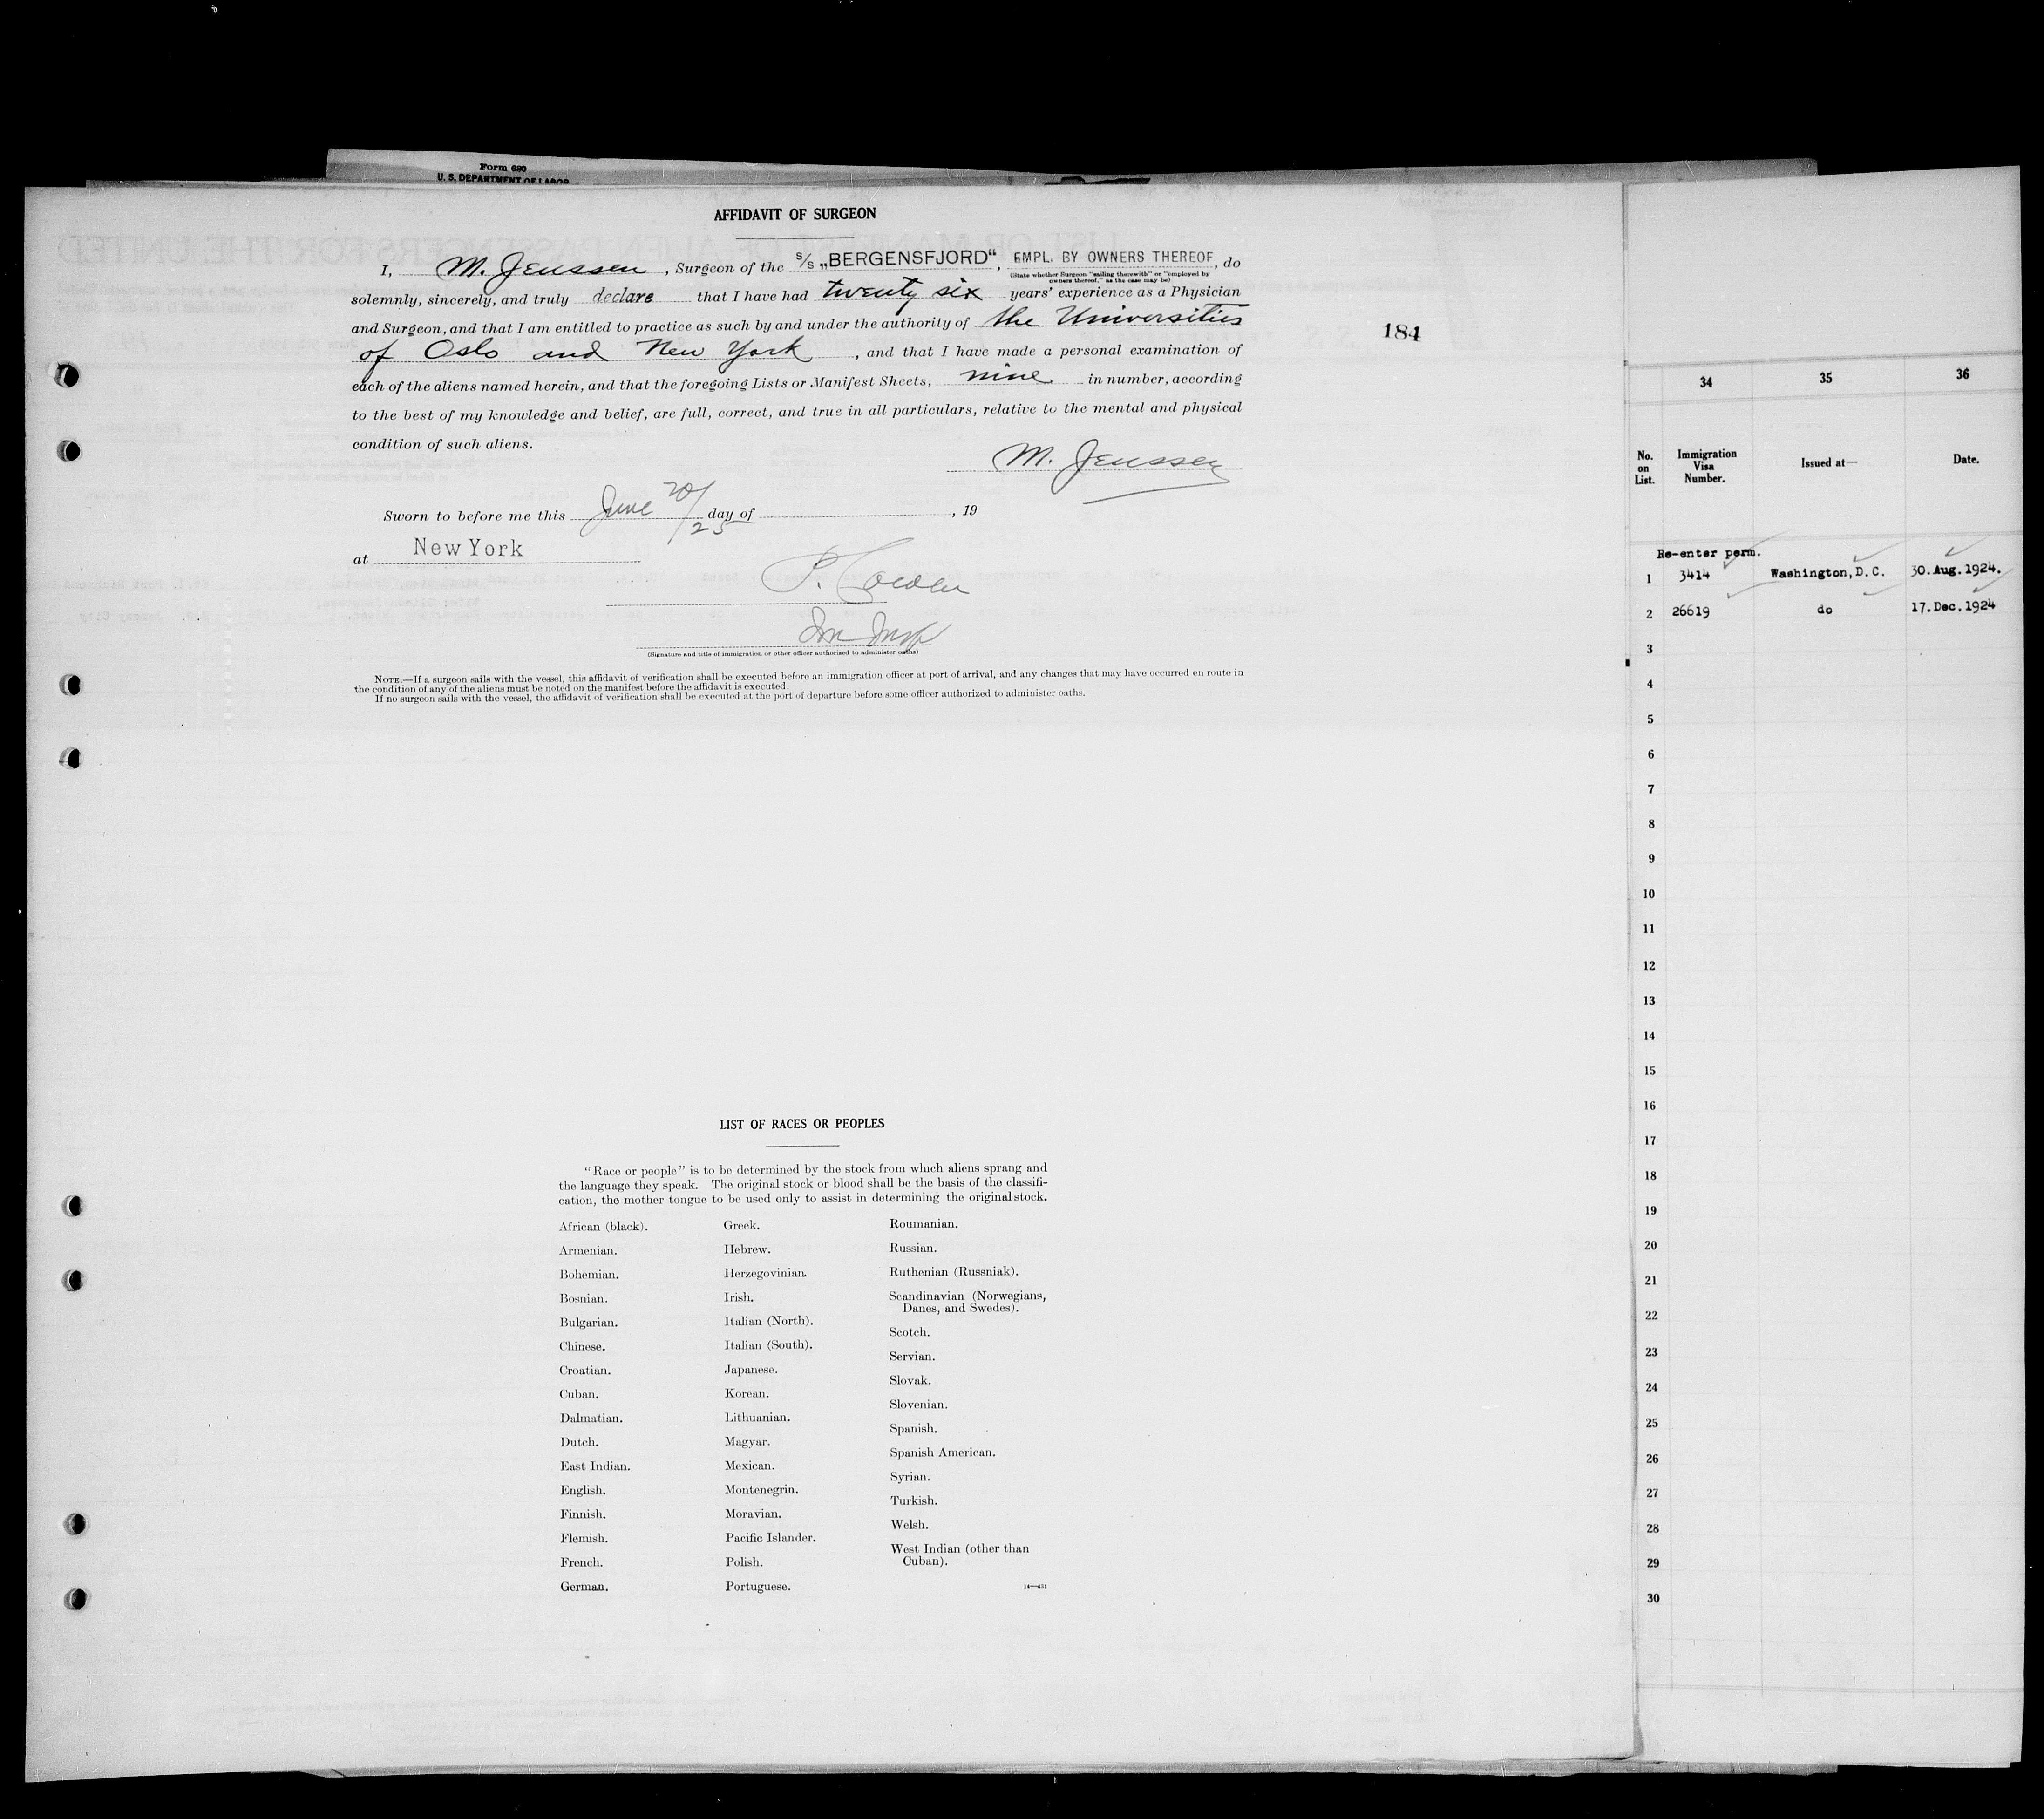 Form 680
U. S. DEPARTMENT OF LABOR
AFFIDAVIT OF SURGEON
I, M. Jenssen, Surgeon of the S/S „BERGENSFJORD“, EMPL. BY OWNERS THEREOF, do
(State whether Surgeon "sailing therewith" or "employed by
owners thereof," as the case may be)
solemnly, sincerely, and truly declare that I have had twenty six years' experience as a Physician
and Surgeon, and that I am entitled to practice as such by and under the authority of the Universities
of Oslo and New York, and that I have made a personal examination of
each of the aliens named herein, and that the foregoing Lists or Manifest Sheets, nine in number, according
to the best of my knowledge and belief, are full, correct, and true in all particulars, relative to the mental and physical
condition of such aliens.
M. Jenssen
Sworn to before me this June 20/25 day of , 19
at New York
(Signature and title of immigration or other officer authorized to administer oaths)
NOTE.—If a surgeon sails with the vessel, this affidavit of verification shall be executed before an immigration officer at port of arrival, and any changes that may have occurred en route in
the condition of any of the aliens must be noted on the manifest before the affidavit is executed.
If no surgeon sails with the vessel, the affidavit of verification shall be executed at the port of departure before some officer authorized to administer oaths.
184
LIST OF RACES OR PEOPLES
"Race or people" is to be determined by the stock from which aliens sprang and
the language they speak. The original stock or blood shall be the basis of the classifi-
cation, the mother tongue to be used only to assist in determining the original stock.
African (black).
Armenian.
Bohemian.
Bosnian.
Bulgarian.
Chinese.
Croatian.
Cuban.
Dalmatian.
Dutch.
East Indian.
English.
Finnish.
Flemish.
French.
German.
Greek.
Hebrew.
Herzegovinian.
Irish.
Italian (North).
Italian (South).
Japanese.
Korean.
Lithuanian.
Magyar.
Mexican.
Montenegrin.
Moravian.
Pacific Islander.
Polish.
Portuguese.
Roumanian.
Russian.
Ruthenian (Russniak).
Scandinavian (Norwegians,
Danes, and Swedes).
Scotch.
Servian.
Slovak.
Slovenian.
Spanish.
Spanish American.
Syrian.
Turkish.
Welsh.
West Indian (other than
Cuban).
14—431
34 35 36
No. on List. Immigration Visa Number. Issued at— Date.
Re-enter perm.
1 3414 Washington, D.C. 30.Aug.1924.
2 26619 do 17.Dec.1924
3
4
5
6
7
8
9
10
11
12
13
14
15
16
17
18
19
20
21
22
23
24
25
26
27
28
29
30